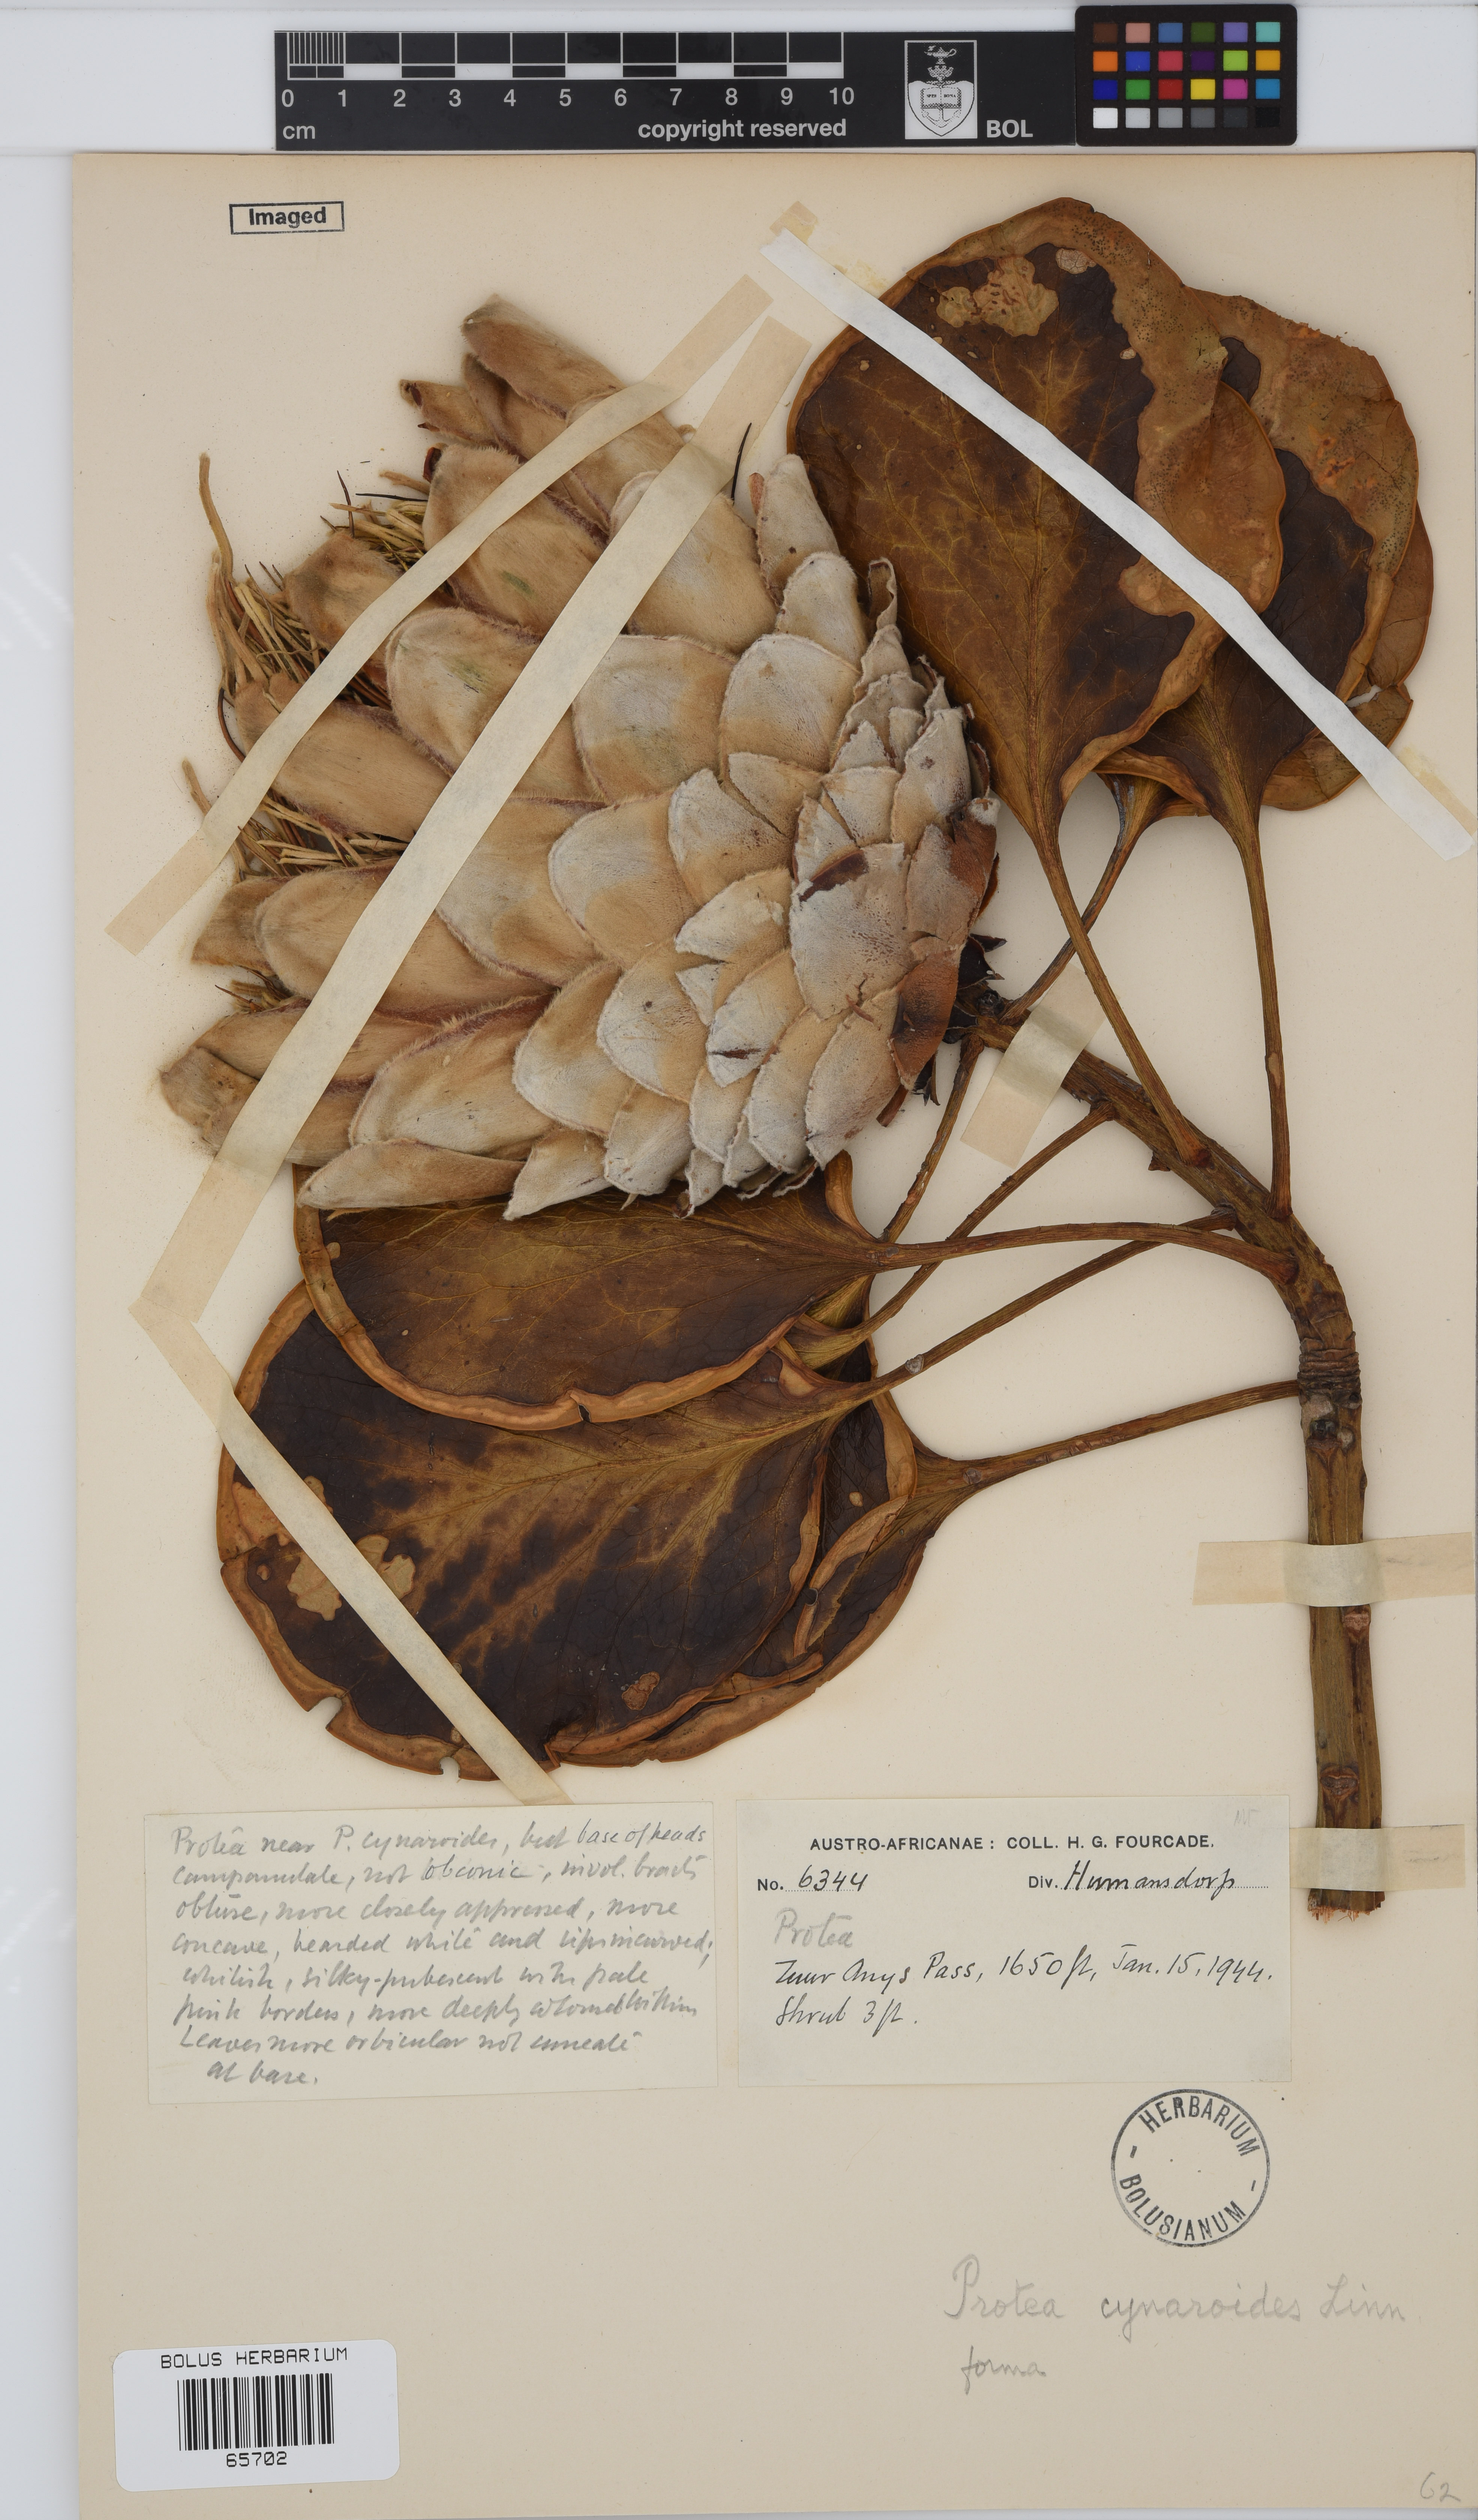 0 1 2 3 4 5 6 7 8 9 10
cm
copyright reserved
BOL
Imaged
Protea near P. cynaroides, but base of heads
campanulate, not obconic, invol. bracts
obtuse, more closely appressed, more
concave, bearded white and tips incurved;
whitish, silky-pubescent with pale
pink borders, more deeply coloured within
Leaves more orbicular not cuneate
at base.
AUSTRO-AFRICANAE: COLL. H. G. FOURCADE.
No. 6344 Div. Humansdorp
Protea
Zuur Anys Pass, 1650 ft, Jan. 15, 1944.
Shrub 3 ft.
HERBARIUM
BOLUSIANUM
Protea cynaroides Linn
forma
BOLUS HERBARIUM
65702
62